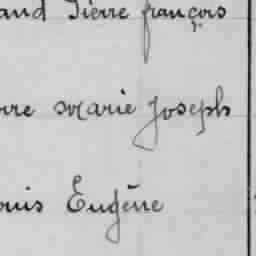 and Pierre françois
rre Marie Joseph
ouis Eugène